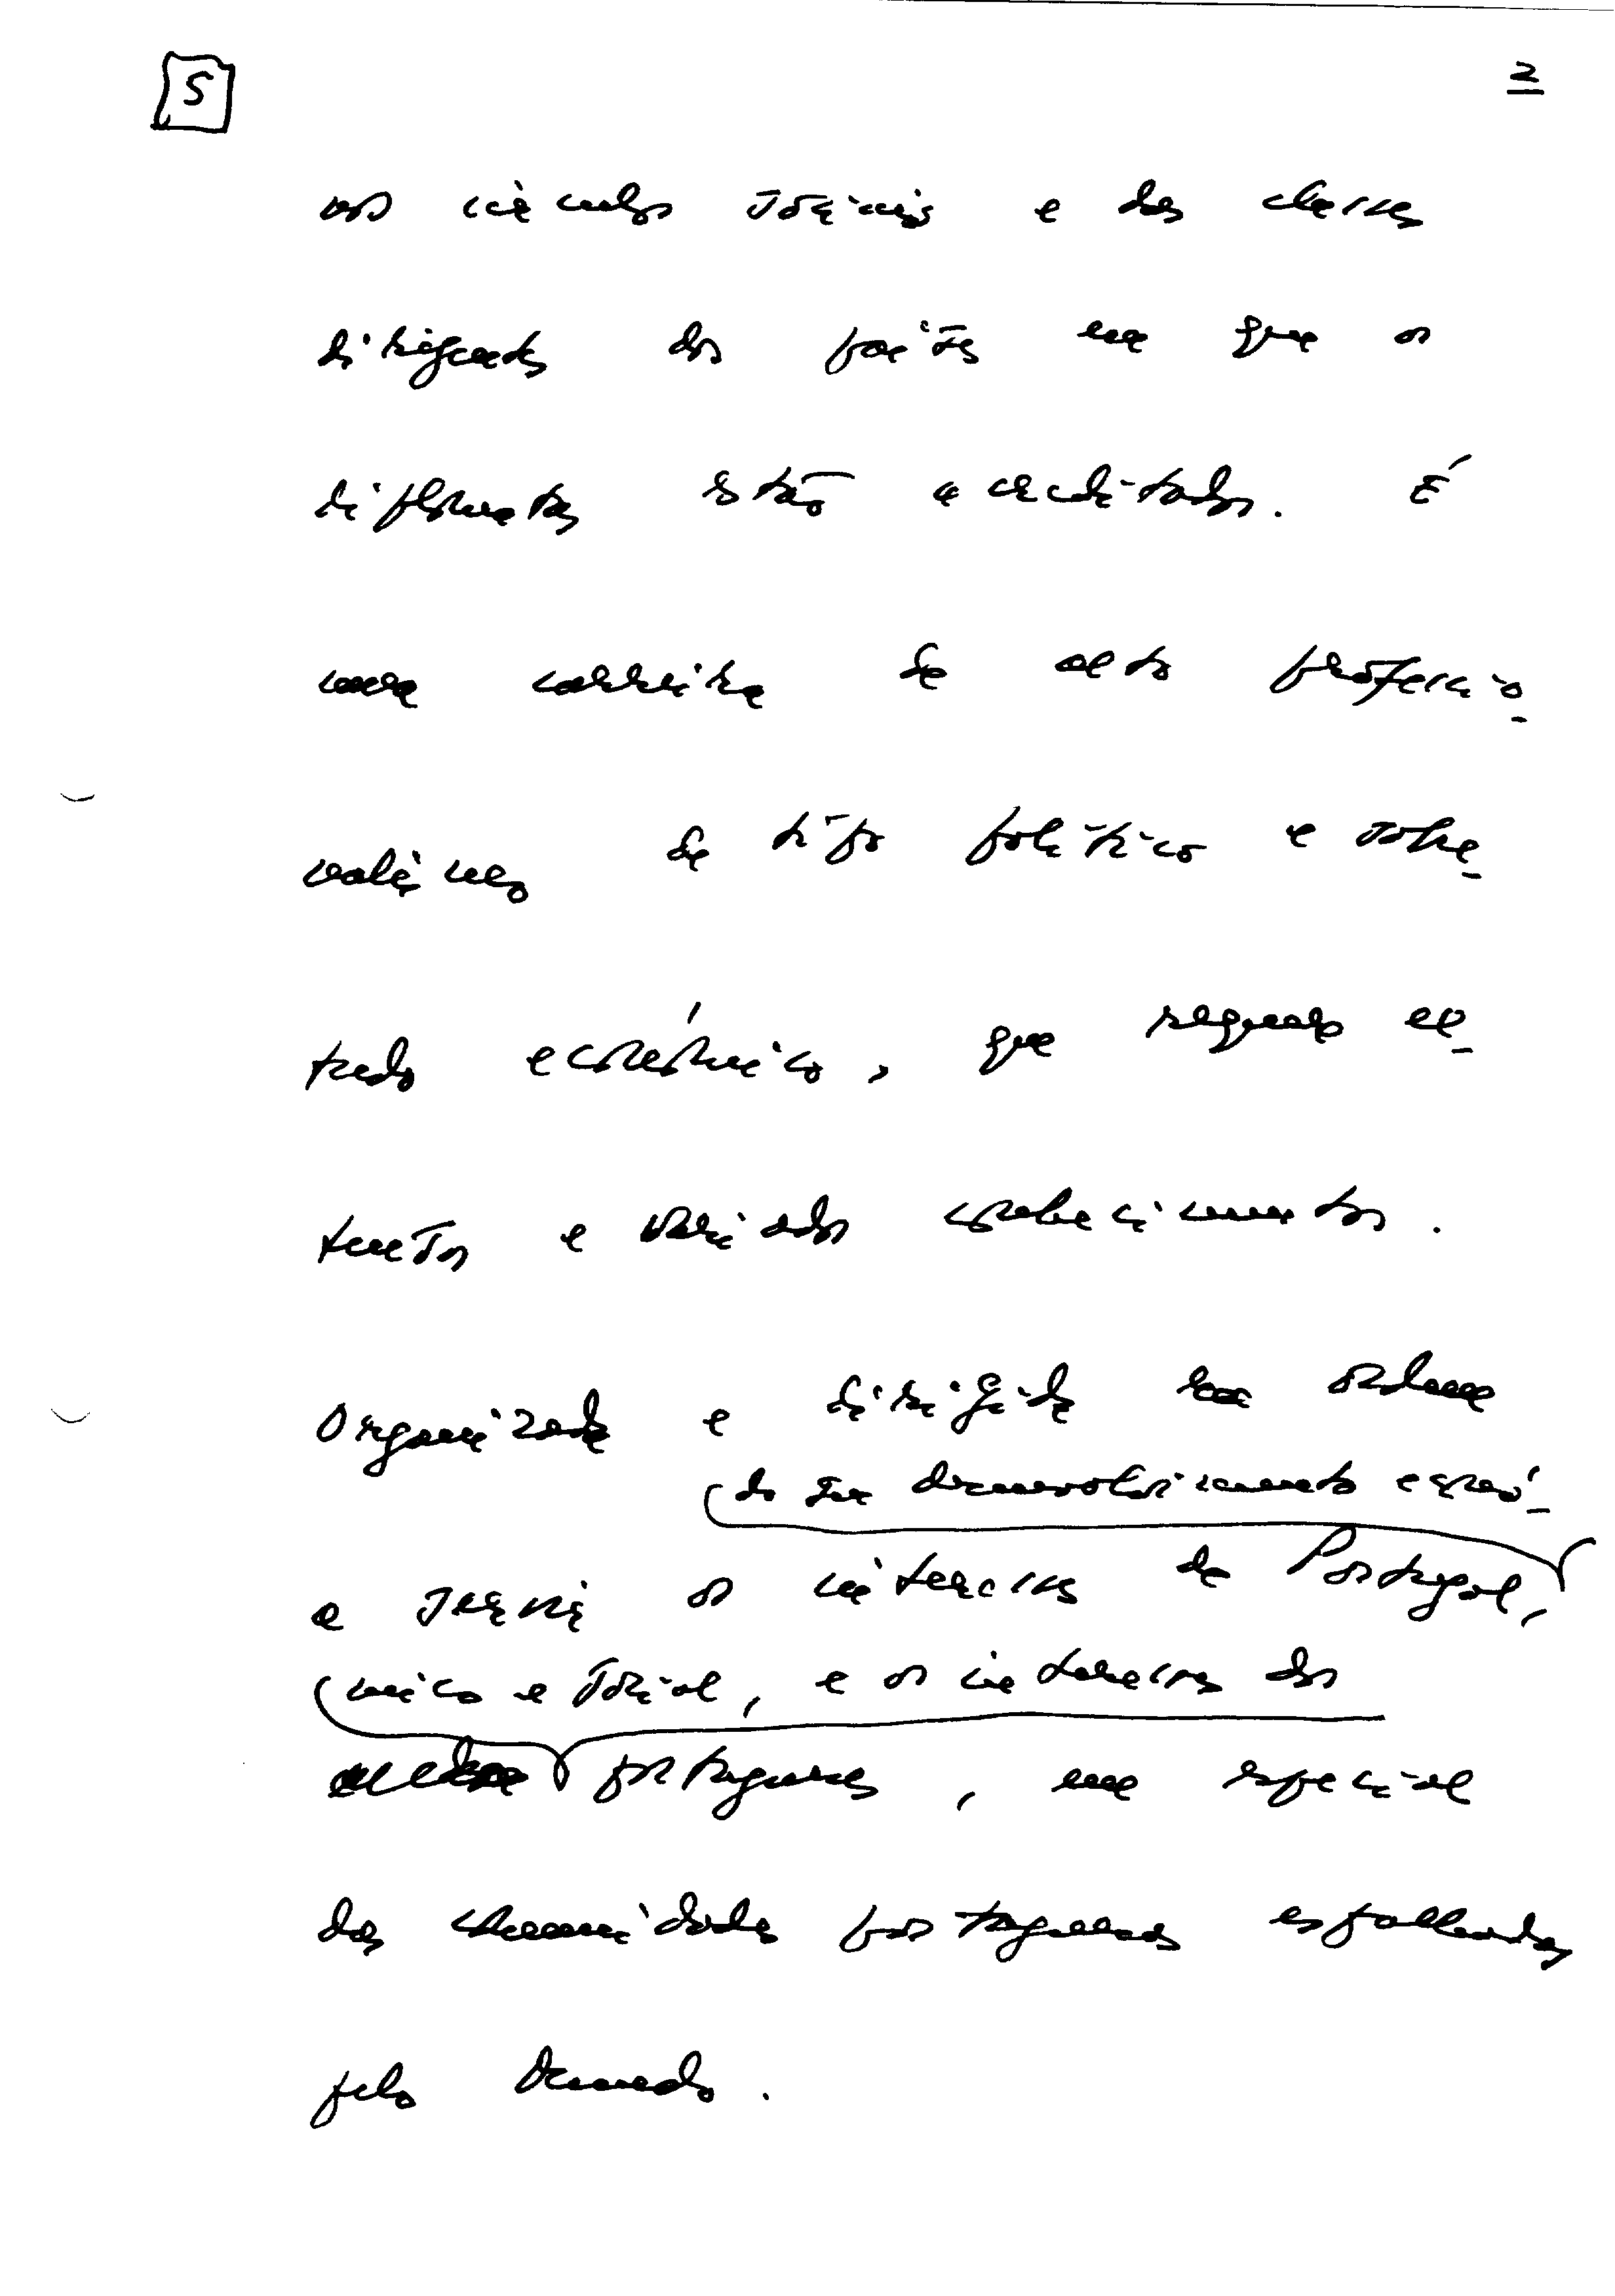 5
2
nos círculos sociais e das classes
dirigentes dos países em que os
diplomatas estão acreditados. É
uma carreira de alto profissio-
nalismo de tipo político e sobre-
tudo económico, que requer ex-
tensos e variados conhecimentos.
Organizada e dirigida em ordem
do seu desenvolvimento econó-
a servir os interesses de Portugal,
mico e social, e os interesses dos
portugueses, em especial
das comunidades portuguesas espalhadas
pelo Mundo.